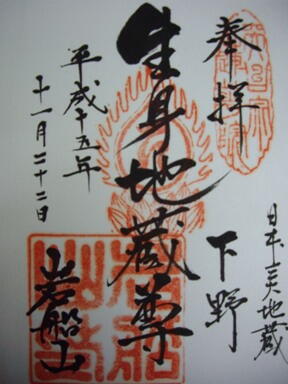 奉拝
下野
日本三大地蔵
生身地蔵尊
平成十五年
十一月二十二日
岩船山